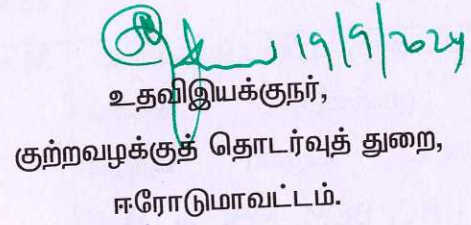 19/9/2024
உதவிஇயக்குநர்,
குற்றவழக்குத் தொடர்வுத் துறை,
ஈரோடுமாவட்டம்.